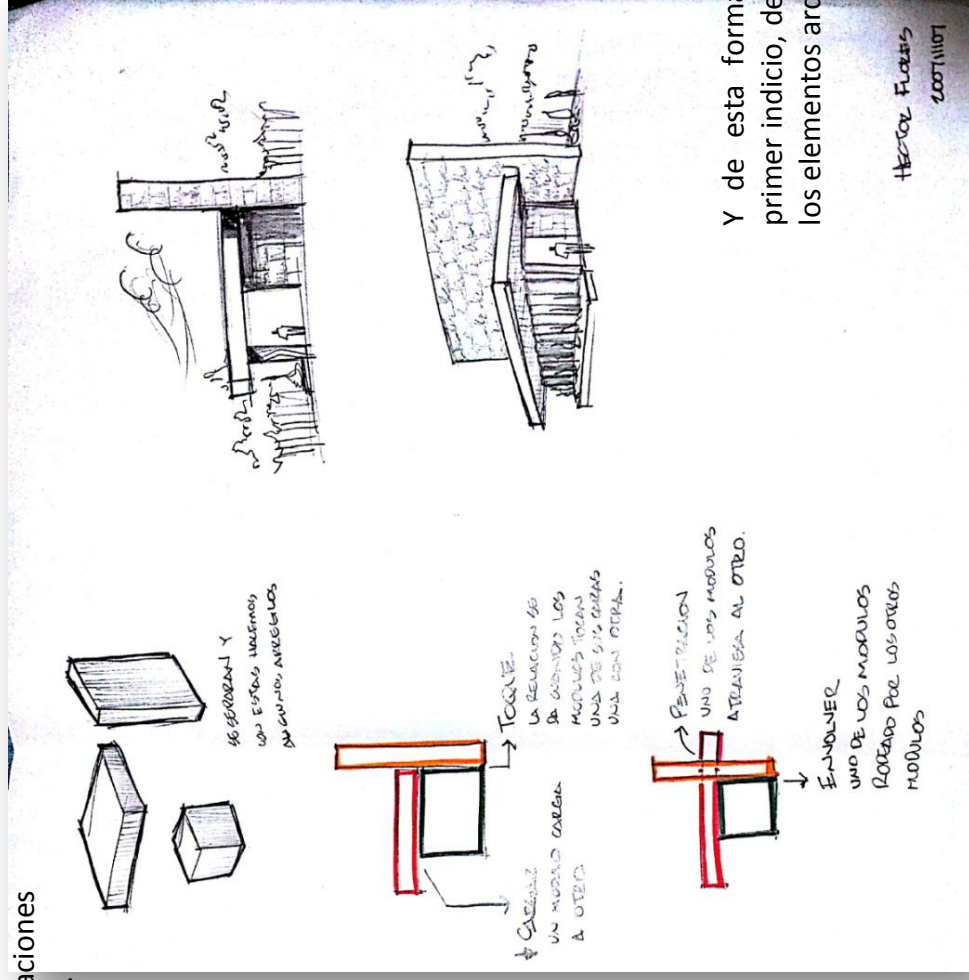 aciones
SE SEPARAN Y
CON ESTAS HACEMOS
ALGUNOS ARREGLOS
CARGAR
UN MODULO CARGA
A OTRO
TOQUE.
LA RELACION SE
DA CUANDO LOS
MODULOS TOCAN
UNA DE SUS CARAS
UNA CON OTRA.
PENETRACION
UNO DE LOS MODULOS
ATRAVIESA AL OTRO.
ENVOLVER
UNO DE LOS MODULOS
RODEADO POR LOS OTROS
MODULOS
Y de esta forma
primer indicio, de
los elementos arc
HECTOR FLORES
200711107